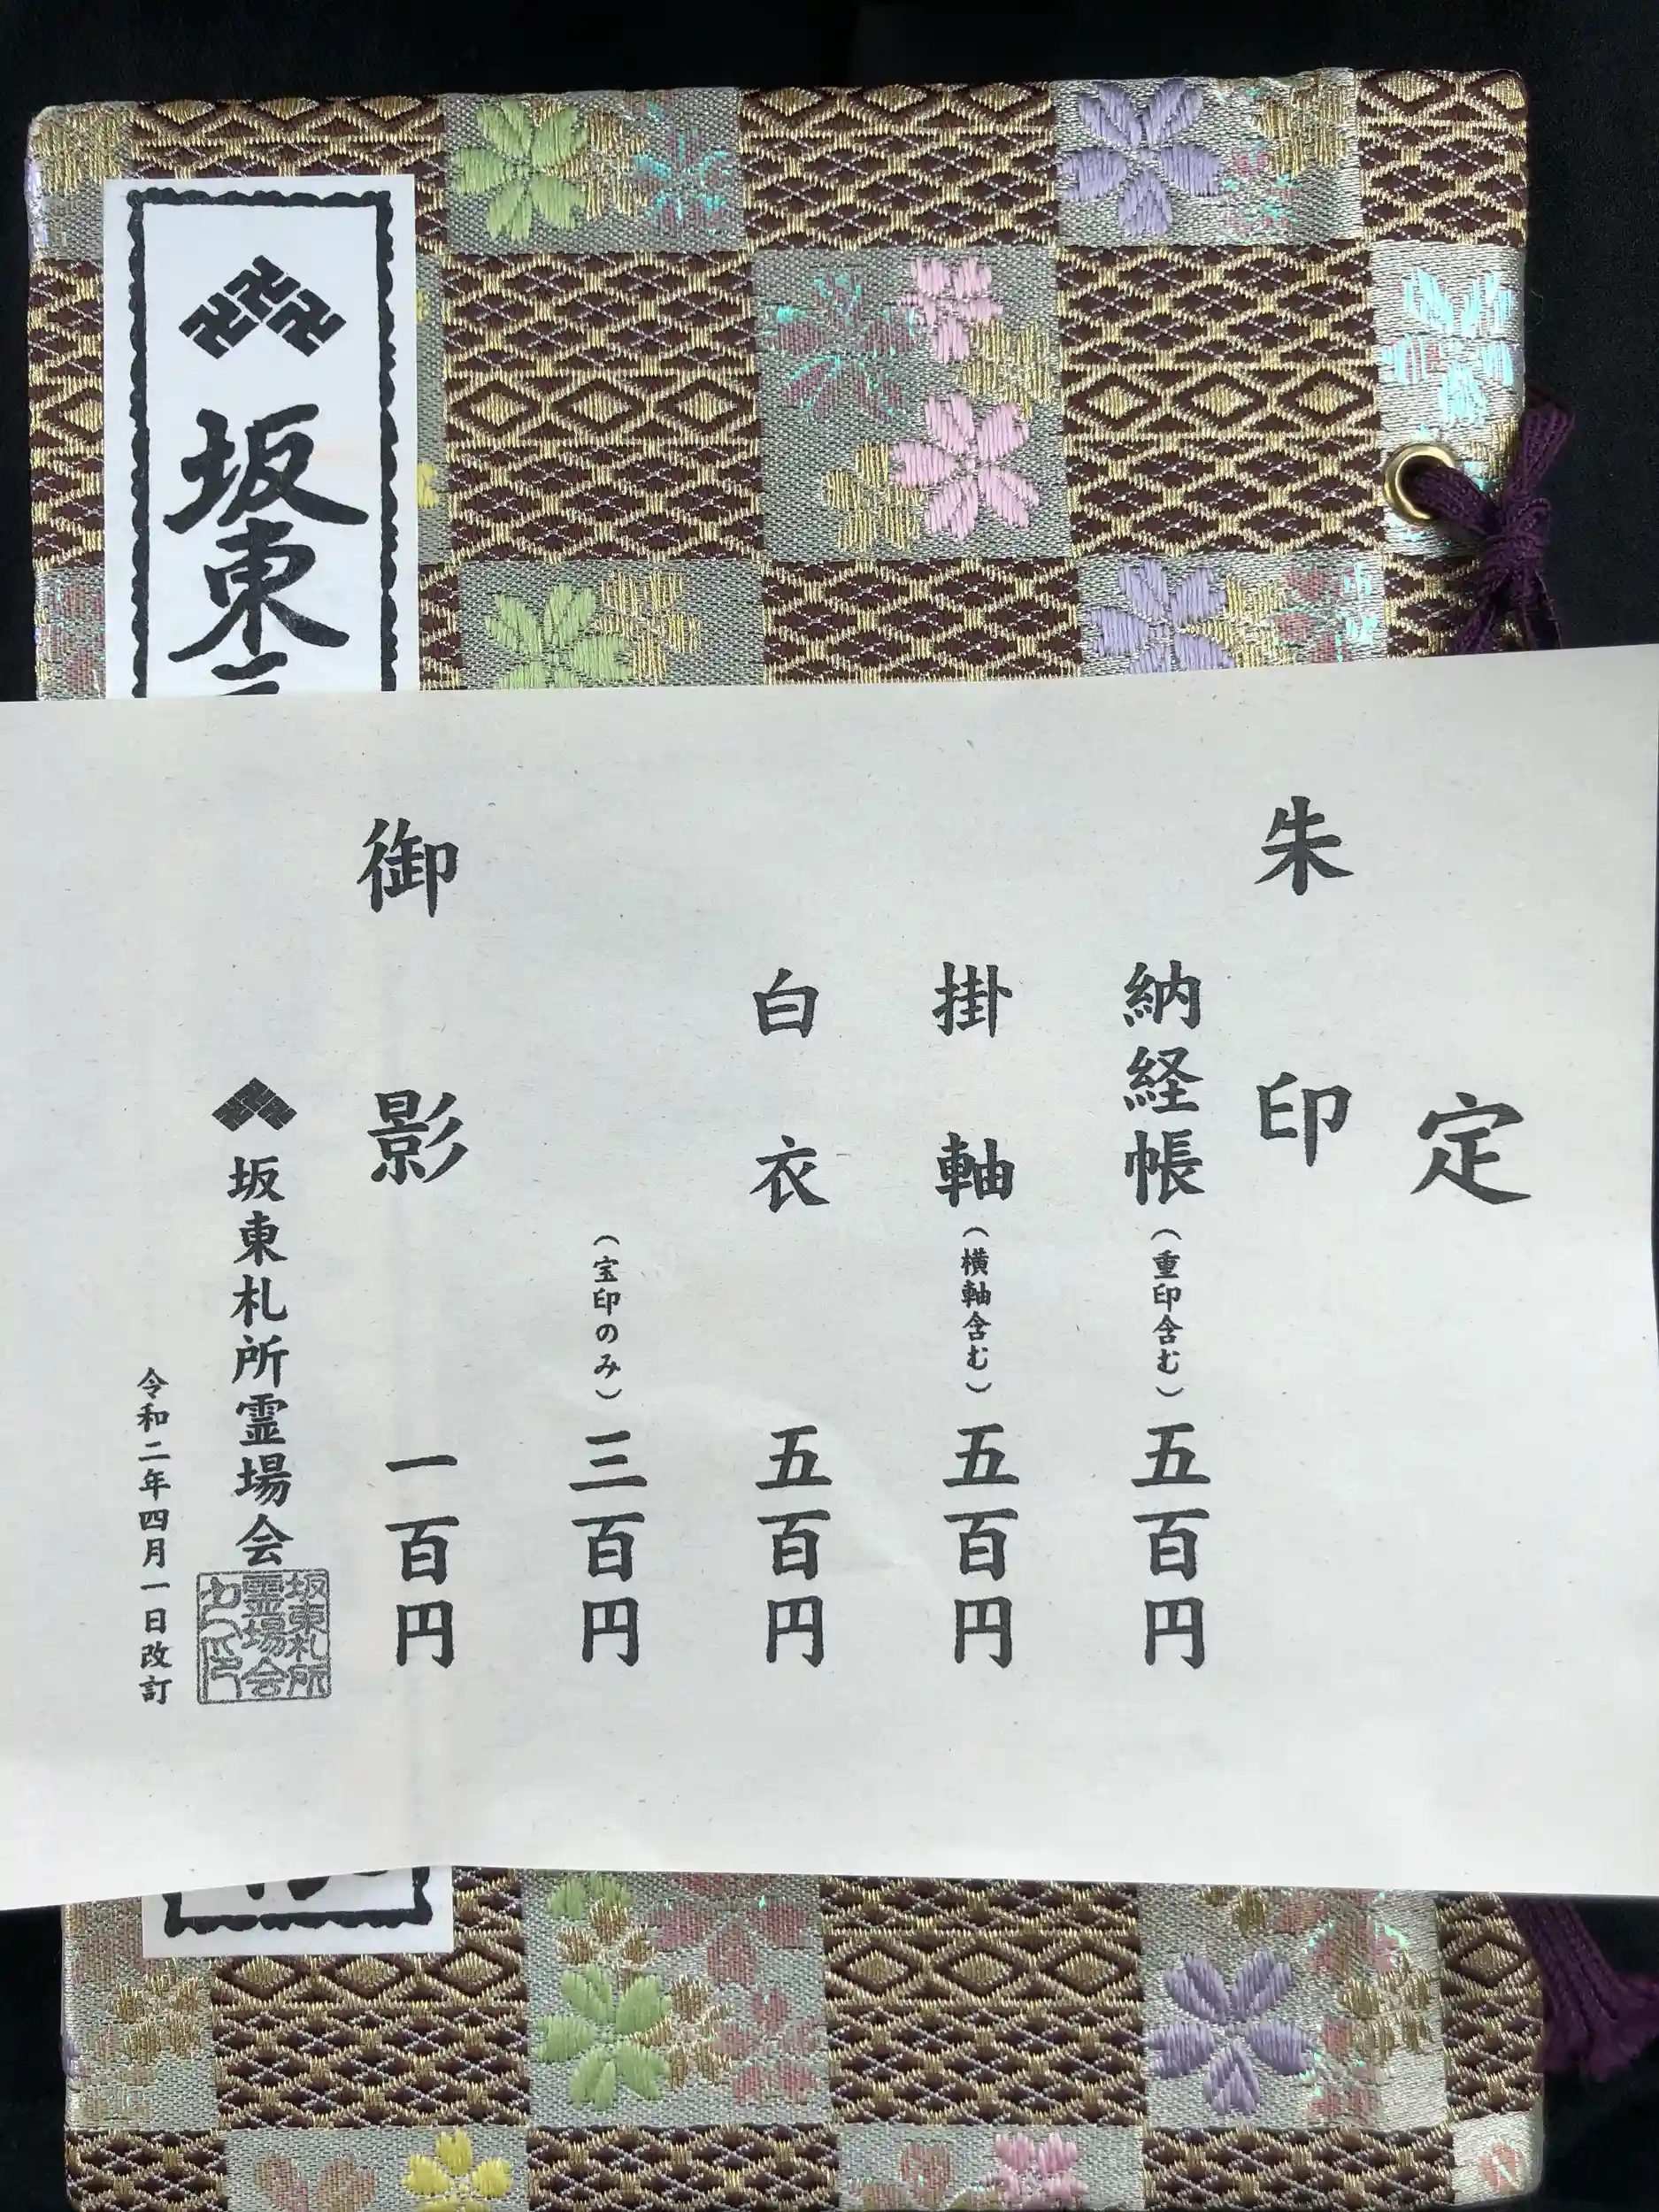 坂東三
定
朱印
納経帳（重印含む）五百円
掛軸（横軸含む）五百円
白衣 五百円
（宝印のみ）三百円
御影 一百円
坂東札所霊場会
坂東札所
霊場会
令和二年四月一日改訂